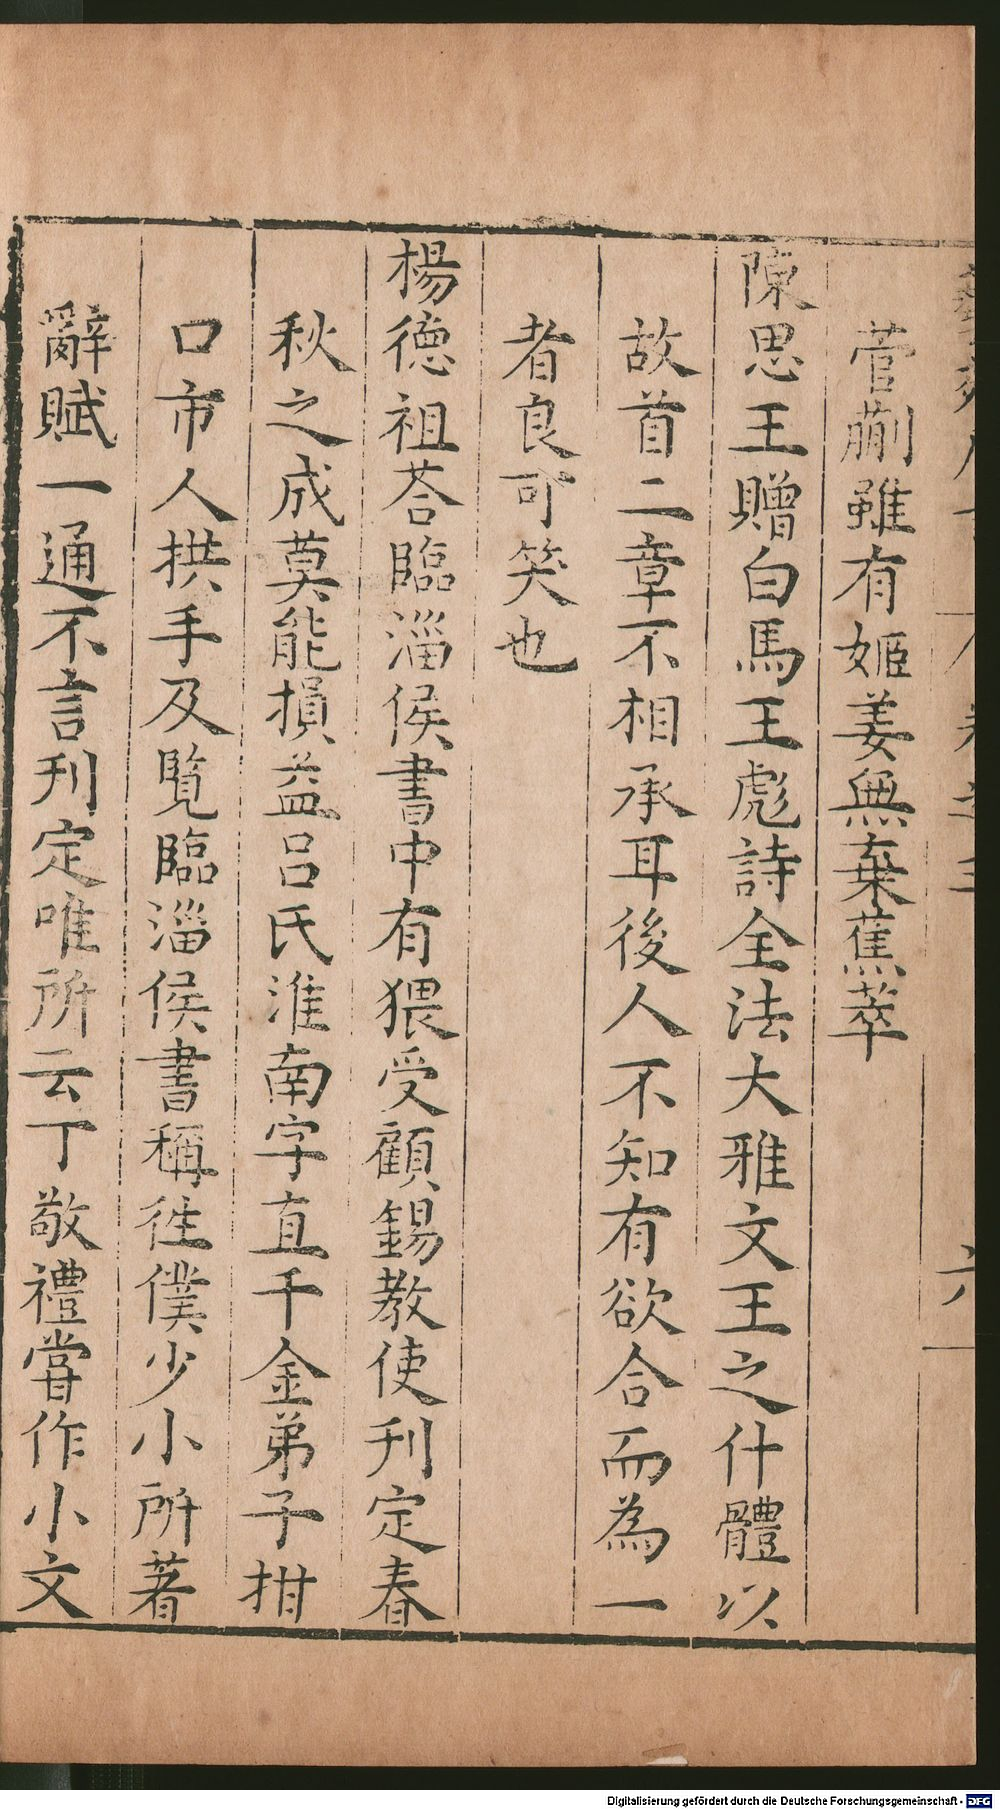 菅蒯雖有姬姜無棄蕉萃
陳思王贈白馬王彪詩全法大雅文王之什體以
故首二章不相承耳後人不知有欲合而為一
者良可笑也
楊德祖荅臨淄侯書中有猥受顧錫教使刋定春
秋之成莫能損益呂氏淮南字直千金弟子拑
口市人拱手及覽臨淄侯書稱徃僕少小所著
辭賦一通不言刋定唯所云丁敬禮嘗作小文
六
Digitalisierung gefördert durch die Deutsche Forschungsgemeinschaft - DFG